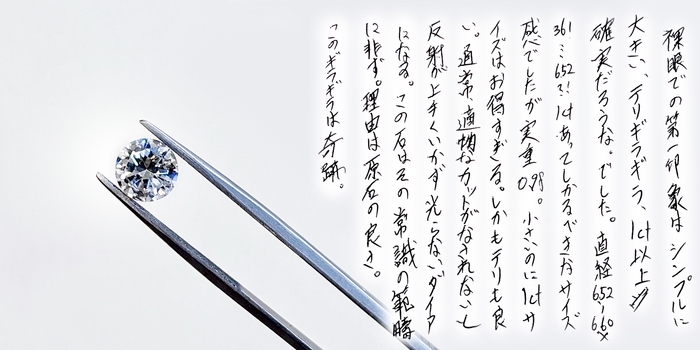 裸眼での第一印象はシンプルに
大きい、テリギラギラ、1ct以上が
確実だろうな。でした。直径6.52-6.60×
3.61…6.52?!1ctあってしかるべきなサイズ
感でしたが実重0.98。小さいのに1ctサ
イズはお得すぎる。しかもテリも良
い。通常適切なカットがなされないと
反射が上手くいかず光らないダイア
になる。この石はその常識の範疇
に非ず。理由は原石の良さ。
このギラギラは奇跡。